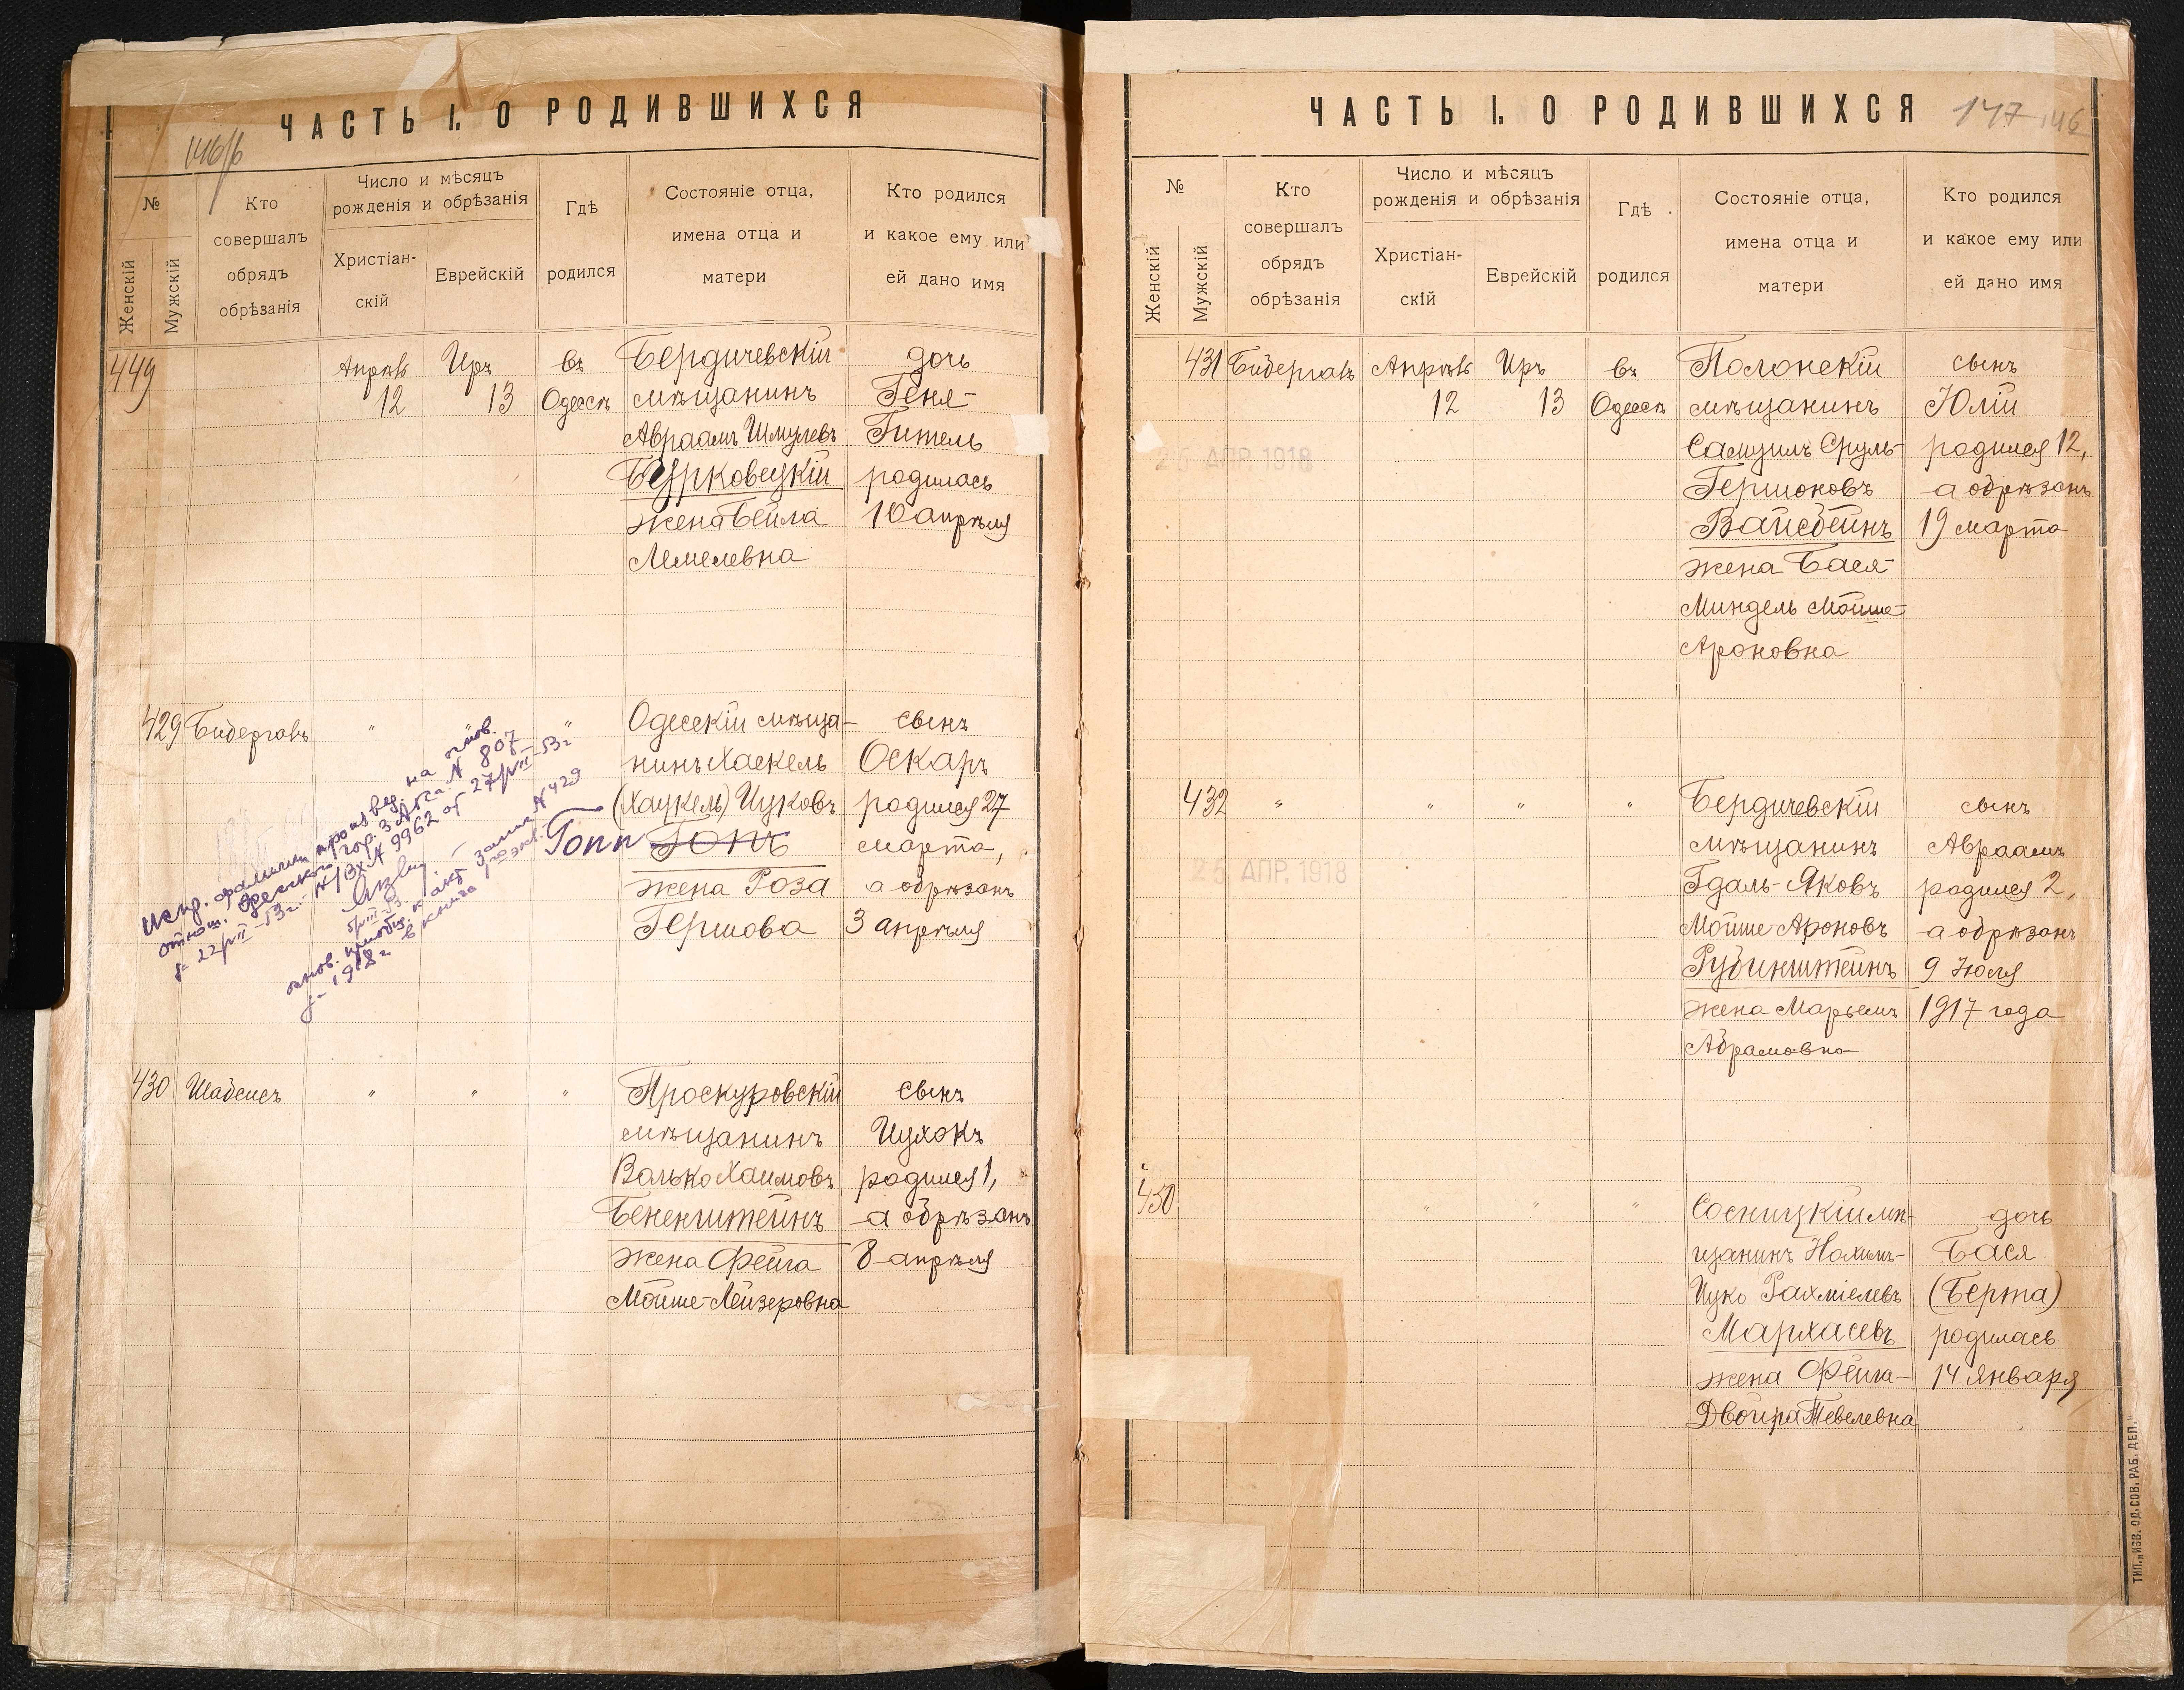 ЧАСТЬ I. О РОДИВШИХСЯ
146/б
№
Женскій
Мужскій
Кто
совершалъ
обрядъ
обрѣзанія
Число и мѣсяцъ
рожденія и обрѣзанія
Христіан-
скій
Еврейскій
Гдѣ
родился
Состояніе отца,
имена отца и
матери
Кто родился
и какое ему или
ей дано имя
449 Апрѣль Иръ въ Бердичевскій дочь
12 13 Одессѣ мѣщанинъ Геня-
Авраамъ Шмулевъ Гитель
Бурковецкій родилась
жена Бейла 10 апрѣля
Лемелевна
429 Бидергалъ " " Одесскій мѣща- сынъ
нинъ Хаскель Оскаръ
(Хацкель) Ицковъ родился 27
Гопп Гопъ марта,
жена Роза а обрѣзанъ
Гершова 3 апрѣля
испр. фамилии произвед. на основ.
отнош. Одесского гор. ЗАГСа N 807
г- 22/VII-53г.- N/ВхN 9962 от 27/VII-53г
основ. приобщ. к акт. запис N 429
г- 1918г в книга
430 Шабсисъ " " " Проскуровскій сынъ
мѣщанинъ Ицхокъ
Волько Хаимовъ родился 1,
Бененштейнъ а обрѣзанъ
жена Фейга 8 апрѣля
Мойше-Лейзеровна
ЧАСТЬ I. О РОДИВШИХСЯ
147 146
№
Женскій
Мужскій
Кто
совершалъ
обрядъ
обрѣзанія
Число и мѣсяцъ
рожденія и обрѣзанія
Христіан-
скій
Еврейскій
Гдѣ
родился
Состояніе отца,
имена отца и
матери
Кто родился
и какое ему или
ей дано имя
431 Бидергалъ Апрѣль Иръ въ Полонскій сынъ
12 13 Одессѣ мѣщанинъ Юлій
Самуилъ Сруль- родился 12,
АПР. 1918
Гершоновъ а обрѣзанъ
Вайсбейнъ 19 марта
жена Бася-
Миндель Мойше-
Ароновна
432 " " " " Бердичевскій сынъ
мѣщанинъ Авраамъ
25 АПР. 1918
Гдаль-Яковъ родился 2,
Мойше-Ароновъ а обрѣзанъ
Рубинштейнъ 9 Июля
жена Марьемъ 1917 года
Абрамовна
450 " " " Сосницкій мѣ- дочь
щанинъ Нохимъ- Бася
Ицко Рахміелевъ (Берта)
Мархасевъ родилась
жена Фейга- 14 января
Двойра Тевелевна
ТИП. „ИЗВ. ОД. СОВ. РАБ. ДЕП."